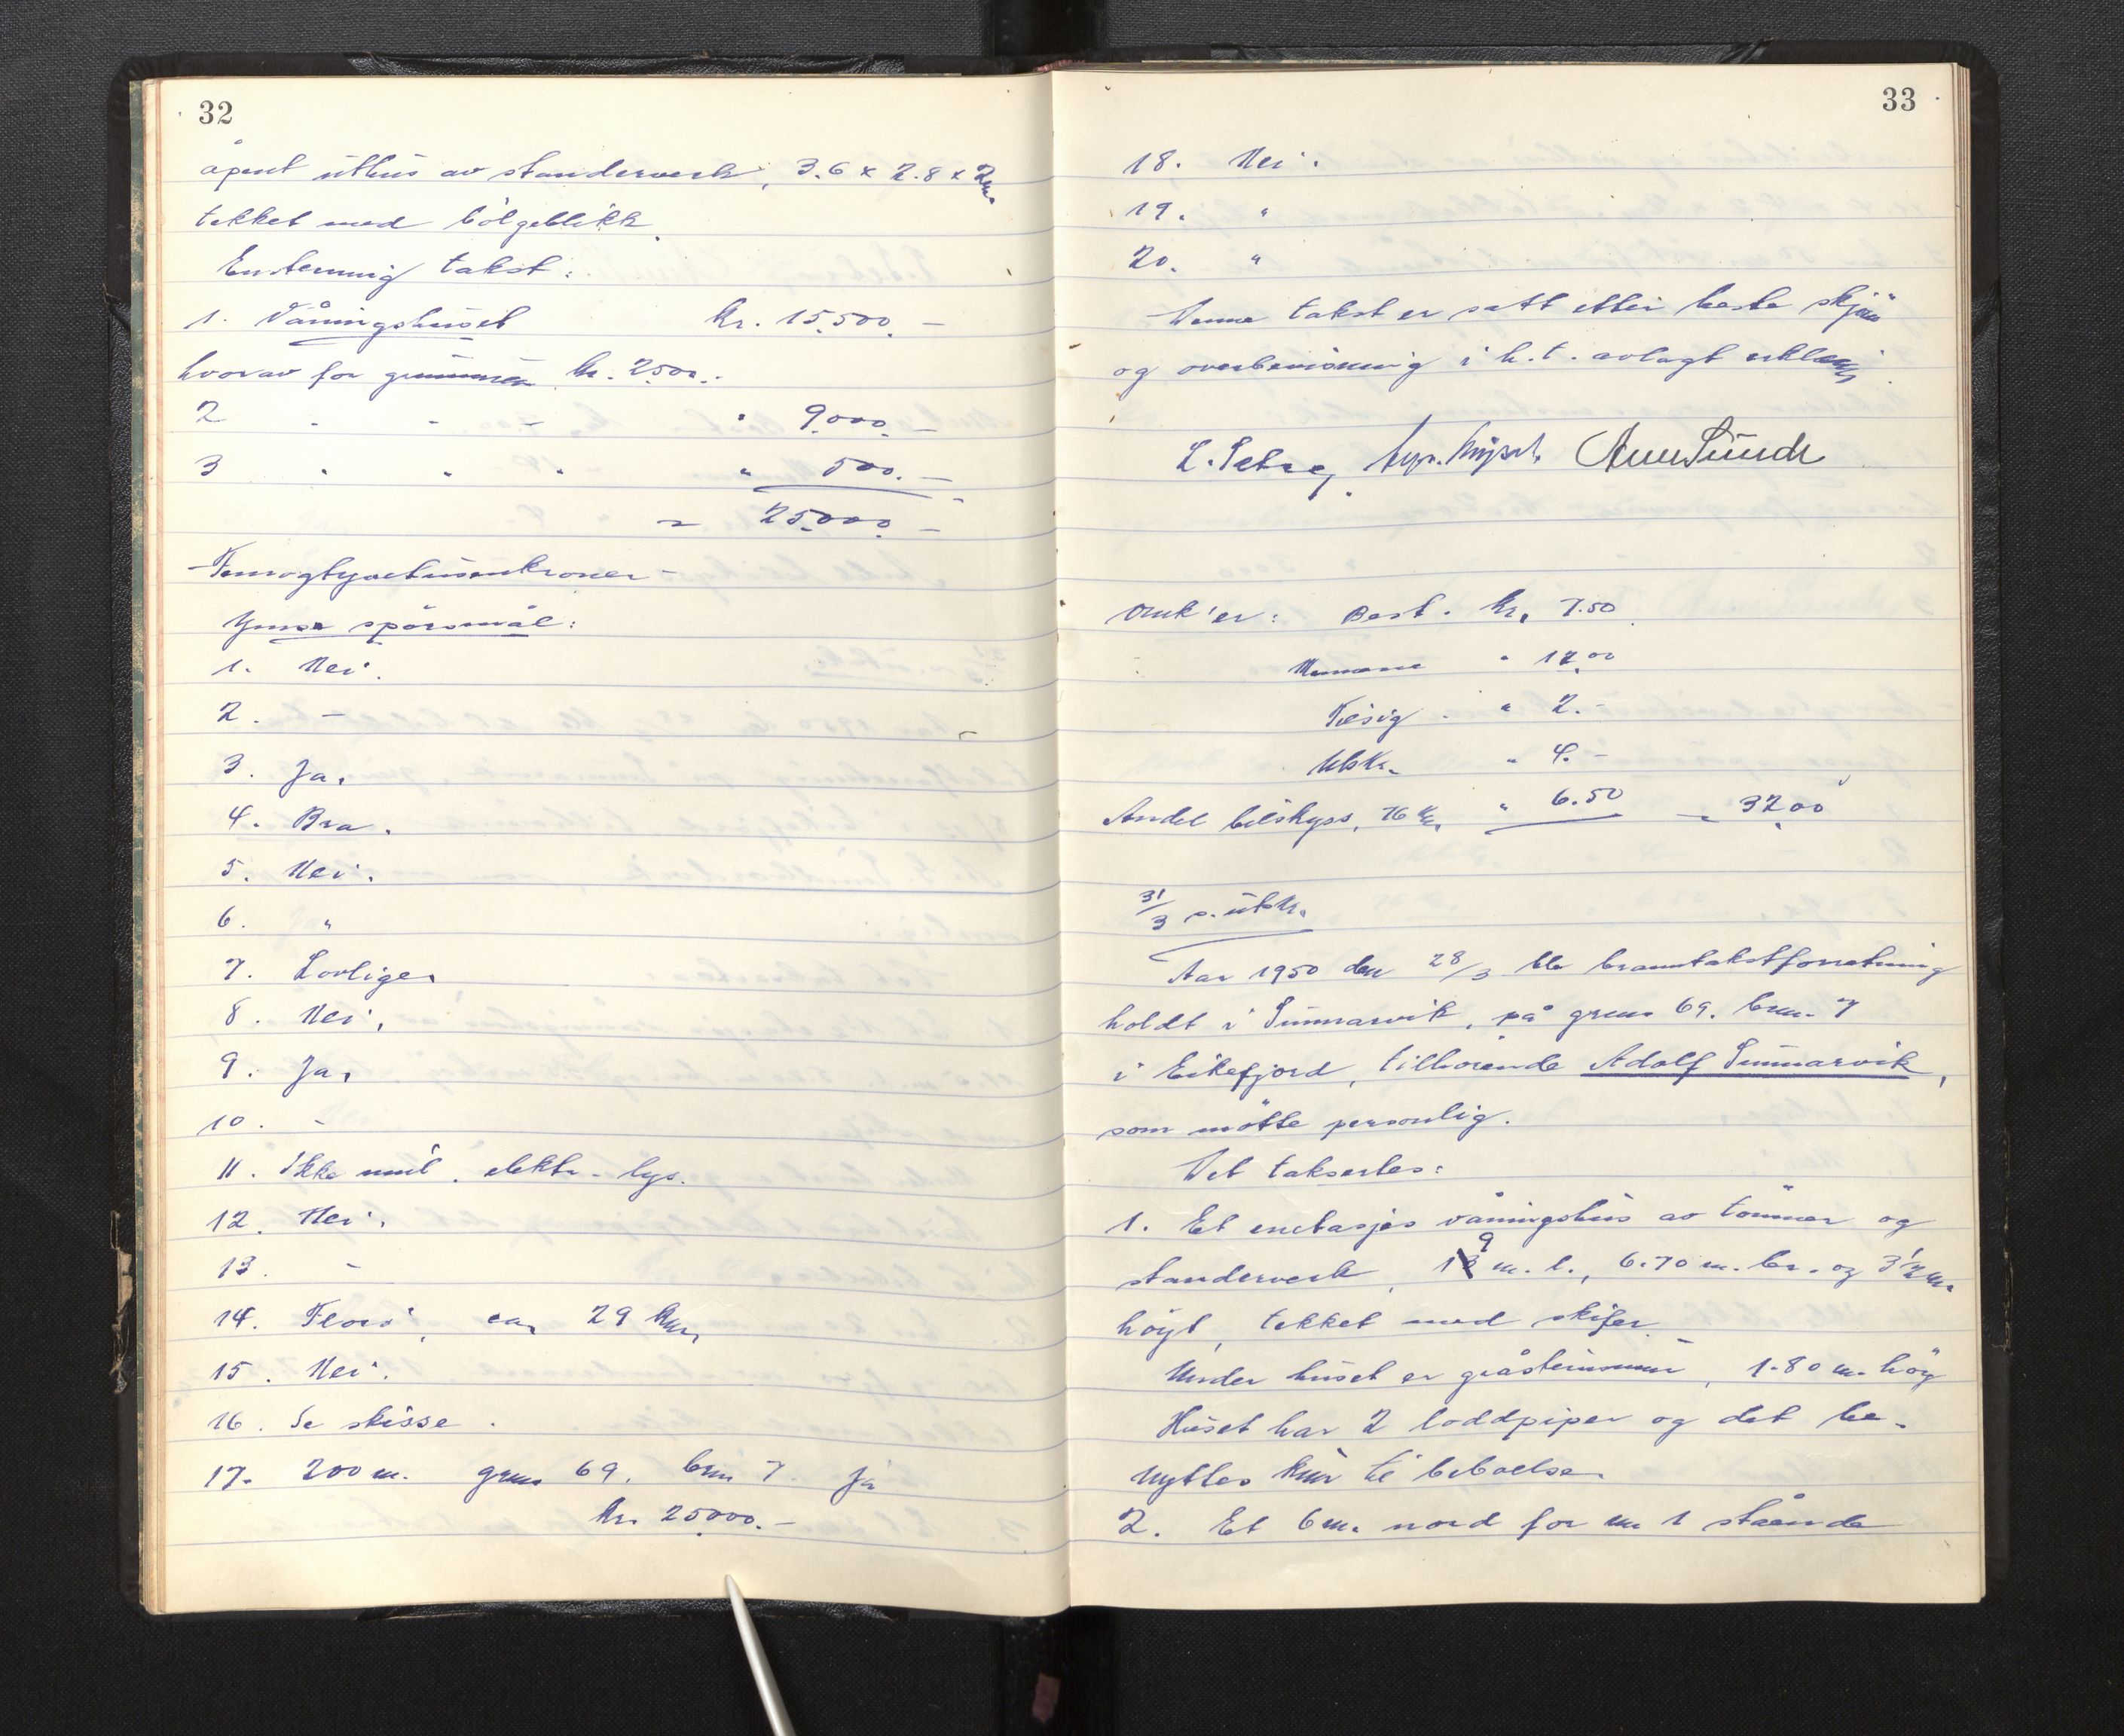 32
åpent uthus av standerverk, 3.6 x 2.8 x 2m.
tekket med bölgeblikk.
Enstemmig takst:
1. Våningshuset kr. 15.500.-
hvorav for grunnmuren kr. 2500.-
2 " " " " 9.000.-
3 " " " " 500.-
= 25.000.-
-Femogtyvetusenkroner-
Ymse spörsmål:
1. Nei.
2. -
3. Ja.
4. Bra.
5. Nei.
6. "
7. Lovlige.
8. Nei.
9. Ja.
10. -
11. Ikke unnt. elektr. lys.
12. Nei.
13. -
14. Florö, ca. 29 km.
15. Nei.
16. Se skisse.
17. 200 m. grnr 69. brnr 7. Ja
kr. 25000.-
33
18. Nei.
19. "
20. "
Denne takst er satt etter beste skjön
og overbevisning i h.t. avlagt erklæring
Omk'er: Best. kr. 7.50
Mennene " 12.00
Tilsig. " 2.-
Utskr. " 4.-
Andel bilskyss, 76 km. " 6.50 = 32.00
31/3 s. utskr.
Aar 1950 den 28/3 ble branntakstforretning
holdt i Sunnarvik, på grnr 69. brnr. 7
i Eikefjord, tilhörende Adolf Sunnarvik,
som mötte personlig.
Det taksertes:
1. Et enetasjes våningshus av tömmer og
standerverk, 19 m. l., 6.70 m. br. og 3 1/2 m.
höyt, tekket med skifer.
Under huset er gråsteinsmur, 1.80 m. höy
Huset har 2 loddpiper og det be-
nyttes kun til beboelse.
2. Et 6 m. nord for nr 1 stående